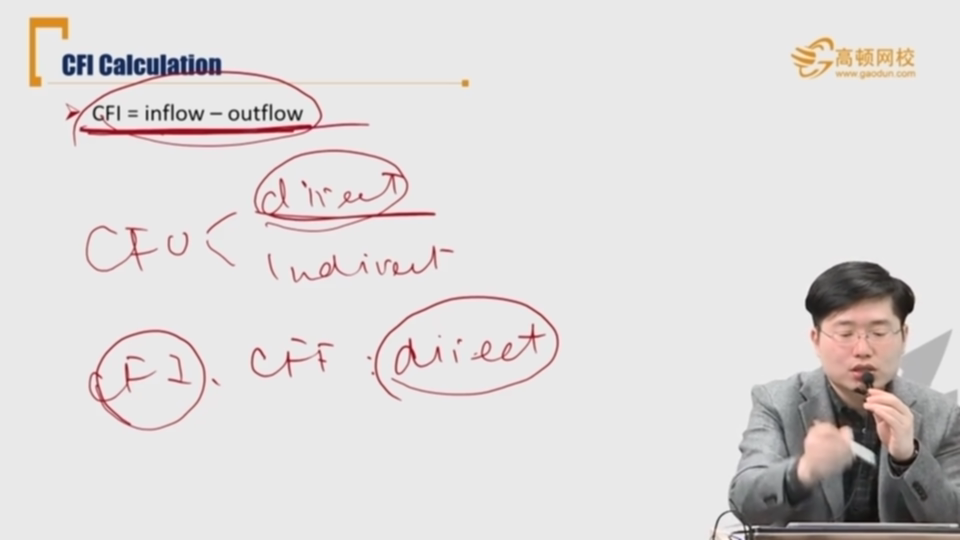 CFI Calculation
高顿网校
www.gaodun.com
CFI = inflow – outflow
direct
CFO <
Indirect
CFI. CFF : direct